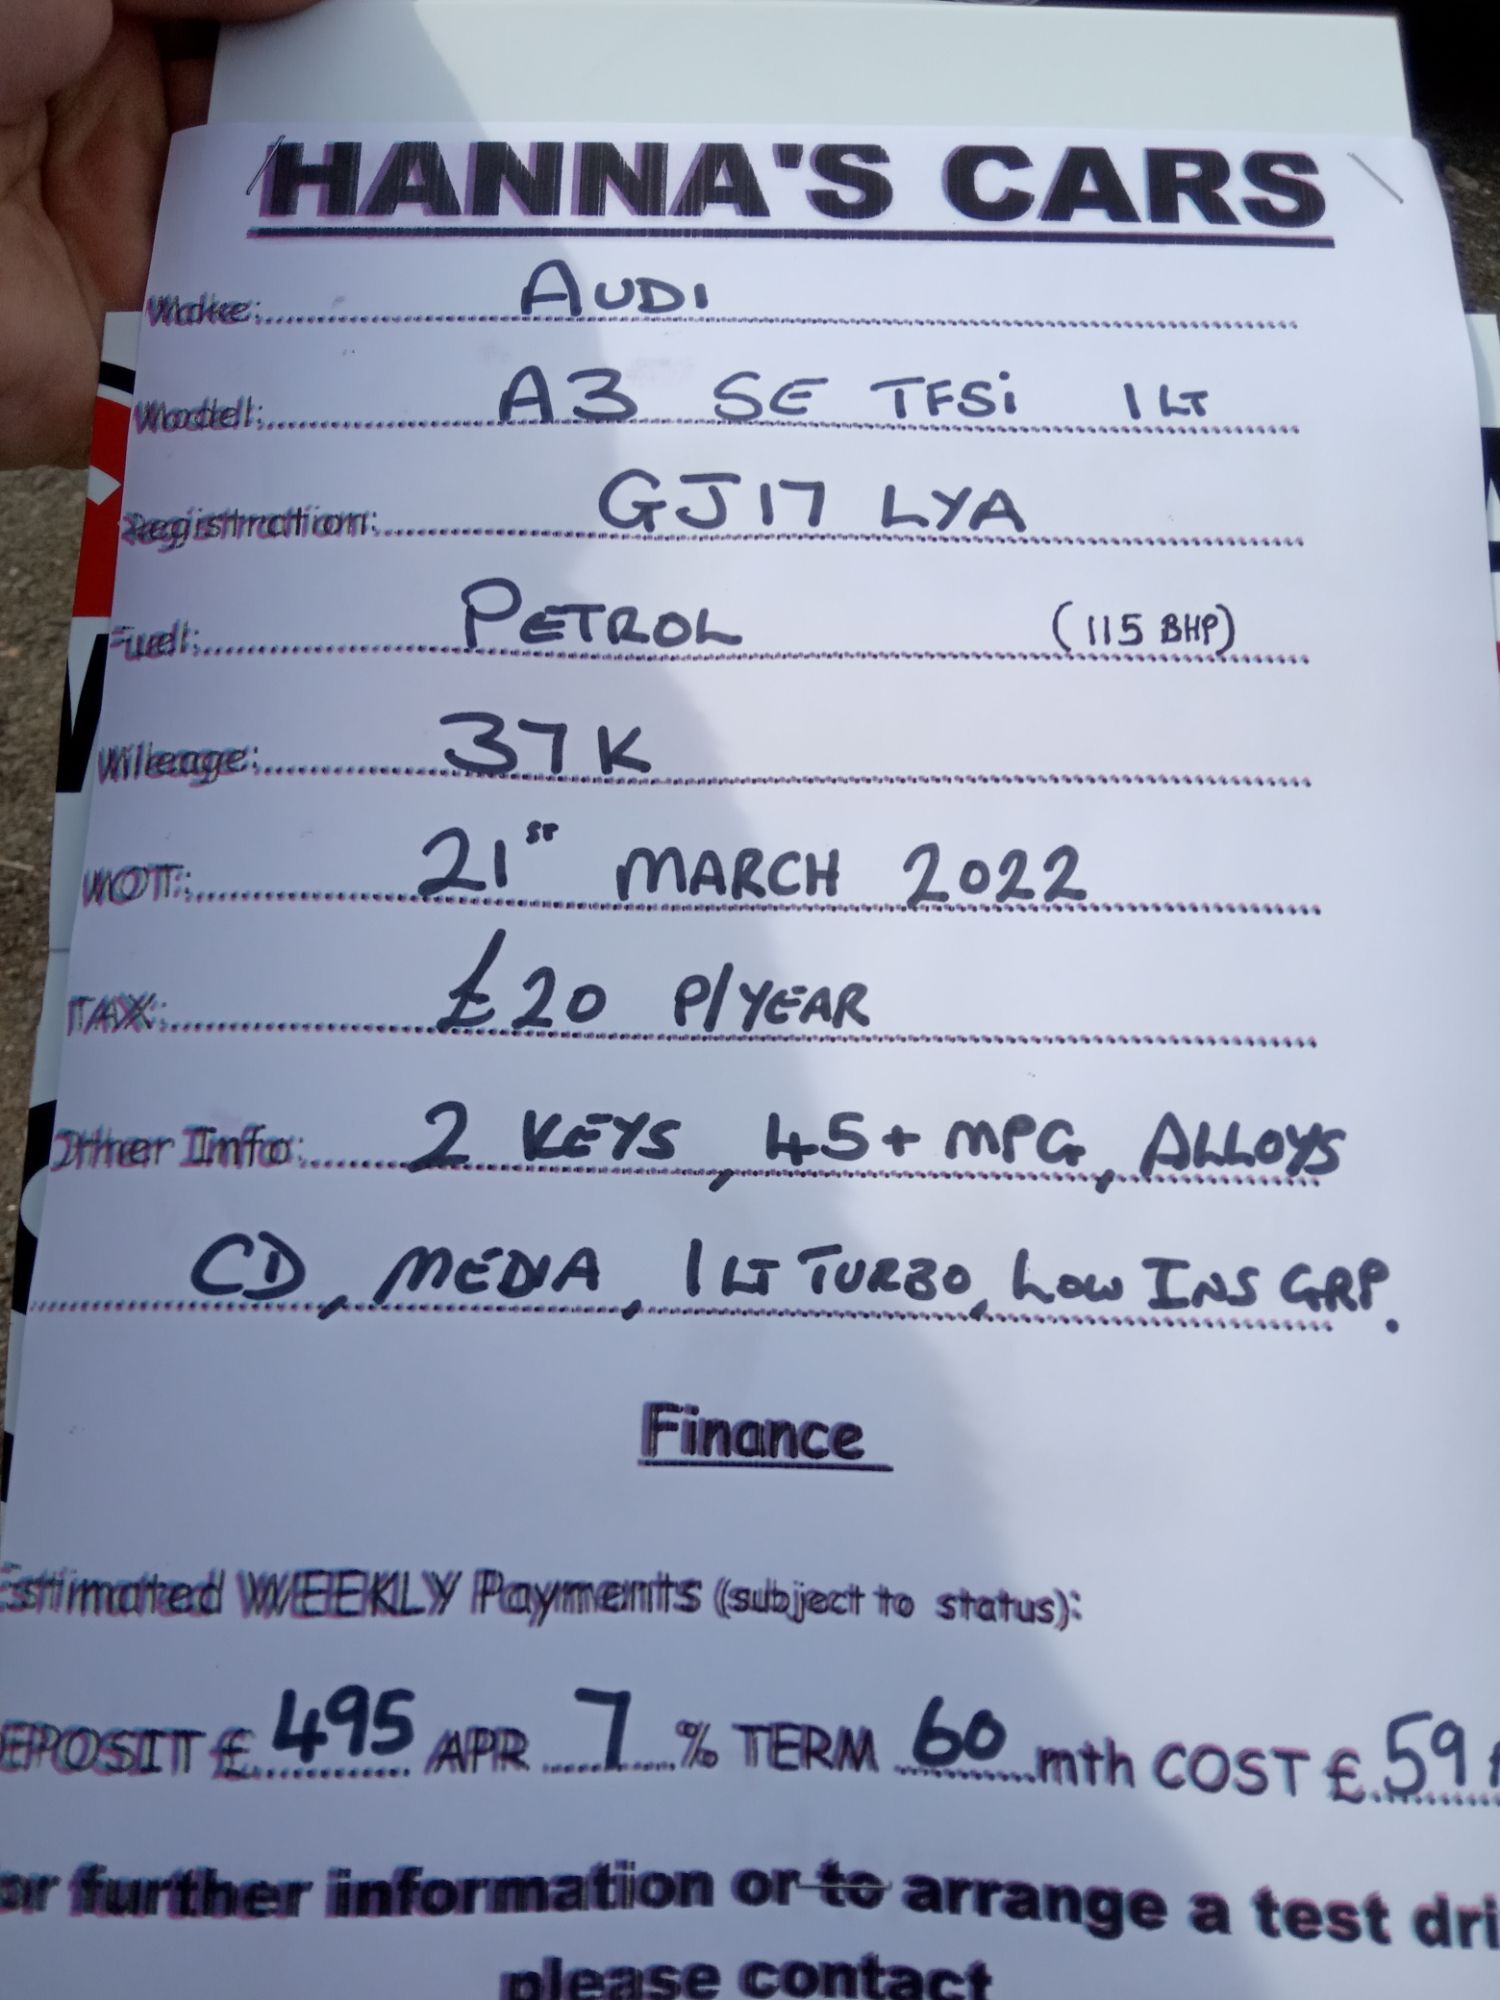 HANNA'S CARS
Make: AUDI
Model: A3 SE TFSi 1 LT
Registration: GJ17 LYA
Fuel: PETROL (115 BHP)
Mileage: 37K
MOT: 21ST MARCH 2022
TAX: £20 P/YEAR
Other Info: 2 KEYS, 45+ MPG, ALLOYS
CD, MEDIA, 1 LT TURBO, LOW INS GRP.
Finance
Estimated WEEKLY Payments (subject to status):
EPOSIT £ 495 APR 7 % TERM 60 mth COST £ 59
or further information or to arrange a test dri
please contact